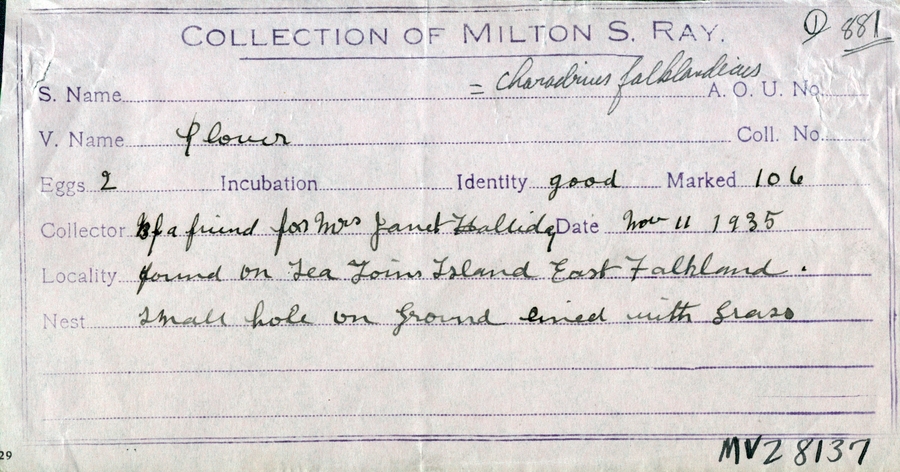 COLLECTION OF MILTON S. RAY.
① 881
= Charadrius falklandicus
S. Name A. O. U. No.
V. Name Plover Coll. No.
Eggs 2 Incubation Identity good Marked 106
Collector By a friend for Mrs Janet Hallidy Date Nov 11 1935
Locality found on Island East Falkland.
Nest small hole on ground lined with Grass
29
MVZ 8137